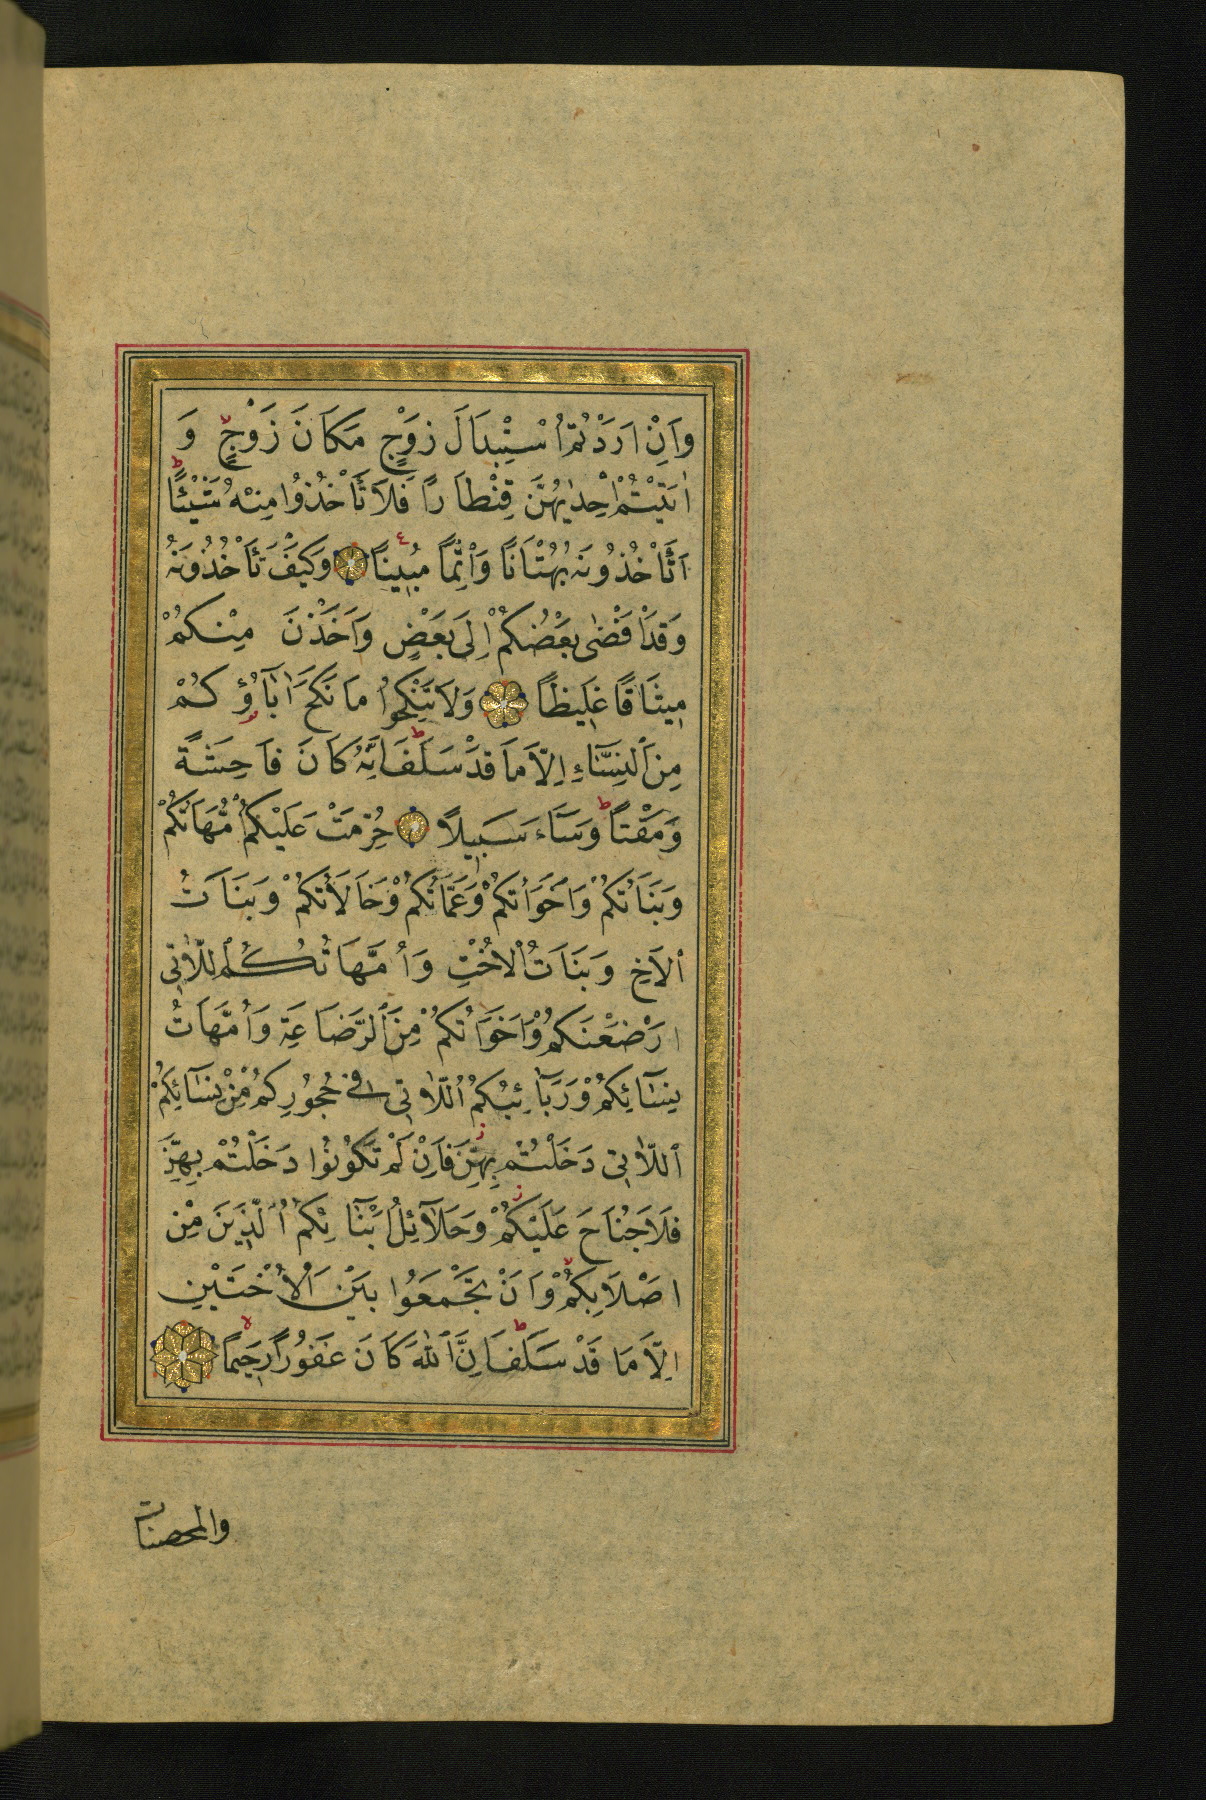 وَاِنْ اَرَدْتُمُ اسْتِبْدَالَ زَوْجٍ مَكَانَ زَوْجٍ وَ
اٰتَيْتُمْ اِحْدٰيهُنَّ قِنْطَارًا فَلَا تَأْخُذُوا مِنْهُ شَيْئًا
اَتَأْخُذُونَهُ بُهْتَانًا وَاِثْمًا مُبِينًا وَكَيْفَ تَأْخُذُونَهُ
وَقَدْ اَفْضٰى بَعْضُكُمْ اِلَى بَعْضٍ وَاَخَذْنَ مِنْكُمْ
مِيثَاقًا غَلِيظًا وَلَا تَنْكِحُوا مَا نَكَحَ اٰبَاؤُكُمْ
مِنَ النِّسَاءِ اِلَّا مَا قَدْ سَلَفَ اِنَّهُ كَانَ فَاحِشَةً
وَمَقْتًا وَسَاءَ سَبِيلًا حُرِّمَتْ عَلَيْكُمْ اُمَّهَاتُكُمْ
وَبَنَاتُكُمْ وَاَخَوَاتُكُمْ وَعَمَّاتُكُمْ وَخَالَاتُكُمْ وَبَنَاتُ
الْاَخِ وَبَنَاتُ الْاُخْتِ وَاُمَّهَاتُكُمُ اللَّاتِي
اَرْضَعْنَكُمْ وَاَخَوَاتُكُمْ مِنَ الرَّضَاعَةِ وَاُمَّهَاتُ
نِسَائِكُمْ وَرَبَائِبُكُمُ اللَّاتِي فِي حُجُورِكُمْ مِنْ نِسَائِكُمُ
اللَّاتِي دَخَلْتُمْ بِهِنَّ فَاِنْ لَمْ تَكُونُوا دَخَلْتُمْ بِهِنَّ
فَلَا جُنَاحَ عَلَيْكُمْ وَحَلَائِلُ اَبْنَائِكُمُ الَّذِينَ مِنْ
اَصْلَابِكُمْ وَاَنْ تَجْمَعُوا بَيْنَ الْاُخْتَيْنِ
اِلَّا مَا قَدْ سَلَفَ اِنَّ اللّٰهَ كَانَ غَفُورًا رَحِيمًا
والمحصنات